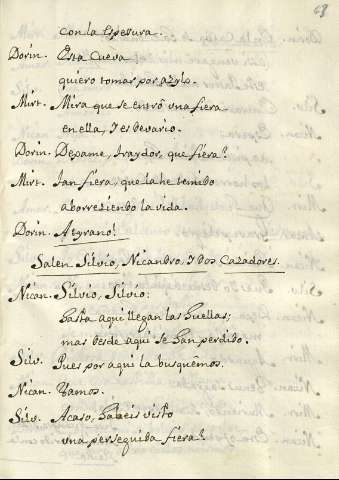 68
con la espesura.
Dorin. Esta Cueva
quiero tomar por azylo.
Mirt. Mira que se entró vna fiera
en ella, I es desvario.
Dorin. Dexame, traydor, que fiera?
Mirt. Tan fiera, que la he temido
aborreziendo la vida.
Dorin. A tyrano!
Salen Silvio, Nicandro, I dos Cazadores.
Nican. Silvio, Silvio:
hasta aqui llegan las huellas;
mas desde aqui se han perdido.
Silv. Pues por aqui la busquêmos.
Nican. Vamos.
Silv. Acaso, habeis visto
vna perseguida fiera?